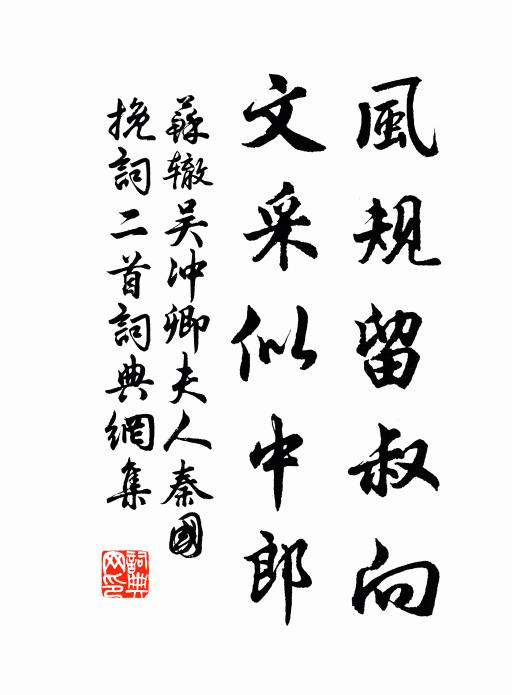 風規留叔向
文采似中郎
蘇辙吴沖卿夫人秦國
挽詞二首詞典網集
詞典網印